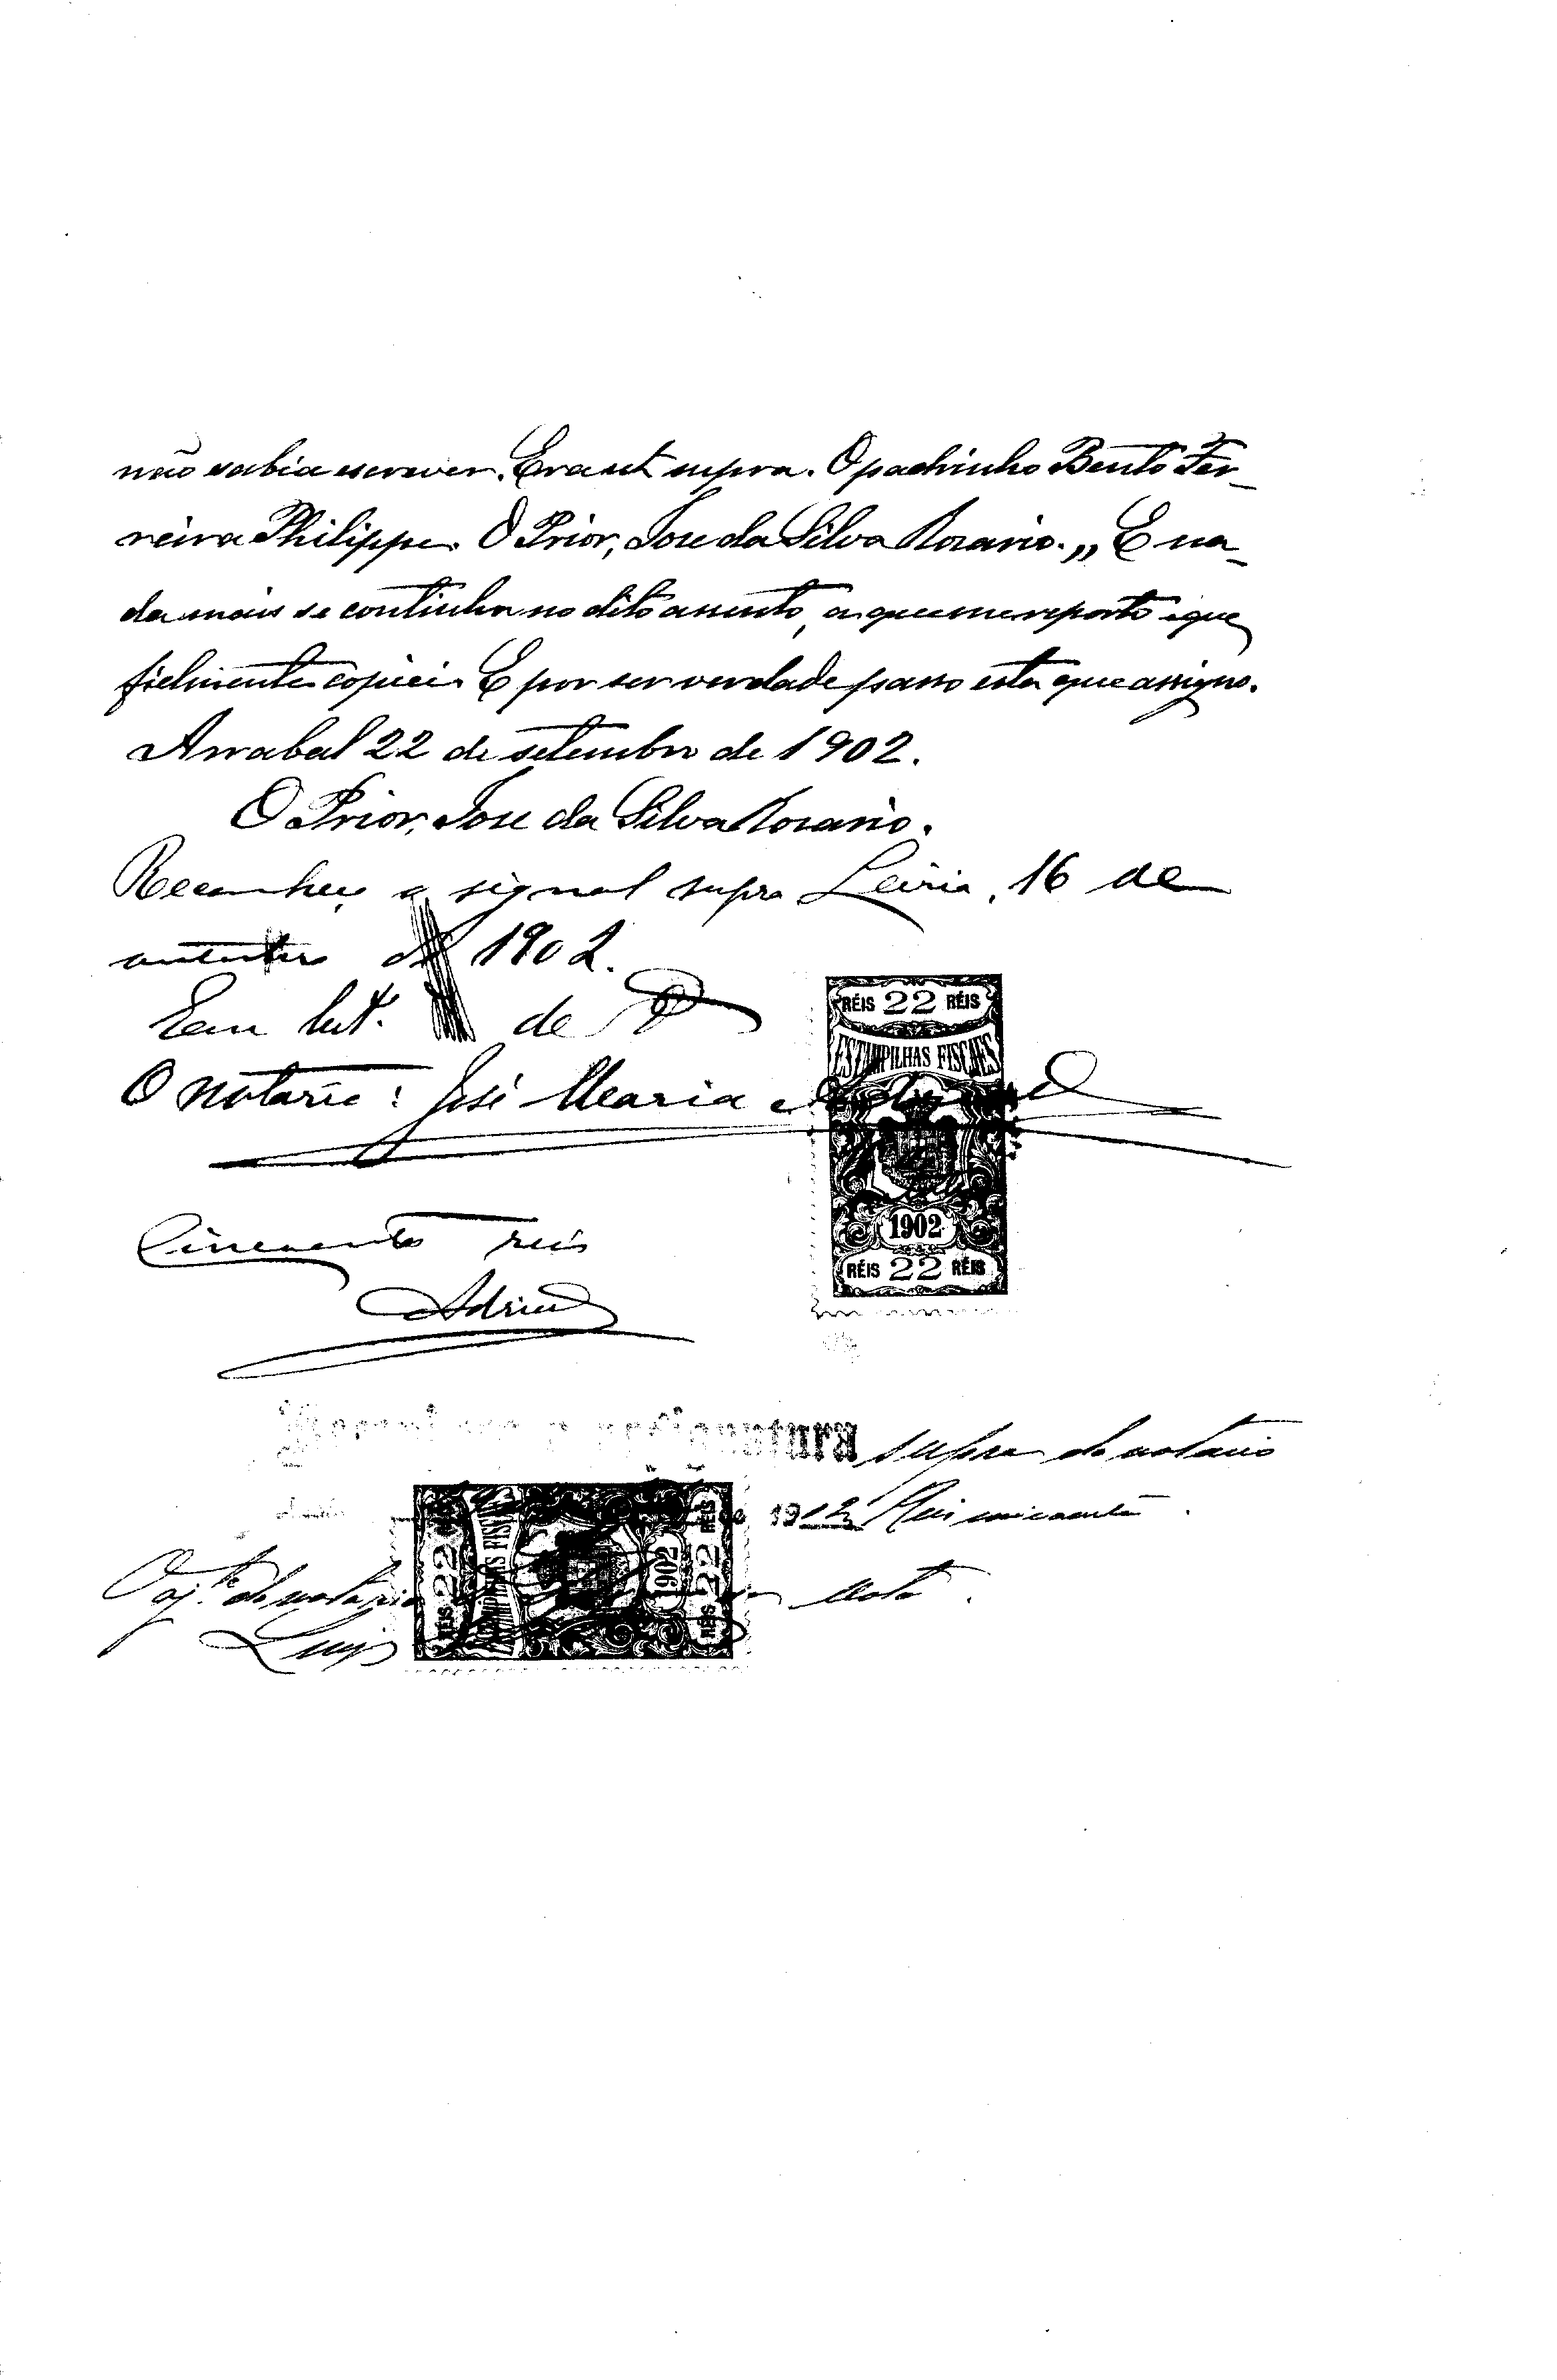 não sabia escrever. Era ut supra. O padrinho Bento Fer-
reira Philippe. O Prior, Jose da Silva Rosario. „ E na-
da mais se continha no dito assento, a que me reporto e que
fielmente copiei. E por ser verdade passo esta que assigno.
Arrabal 22 de setembro de 1902.
O Prior, Jose da Silva Rosario.
Reconheço o signal supra Leiria, 16 de
outubro de 1902.
Em de
O notario: José Maria
RÉIS 22 RÉIS
ESTAMPILHAS FISCAES
1902
RÉIS 22 RÉIS
Cincoenta reis
assignatura supra do notario
de 1902 Reis cincoenta.
O aj.te do notario
Luiz
RÉIS 22 RÉIS
ESTAMPILHAS FISCAES
1902
RÉIS 22 RÉIS